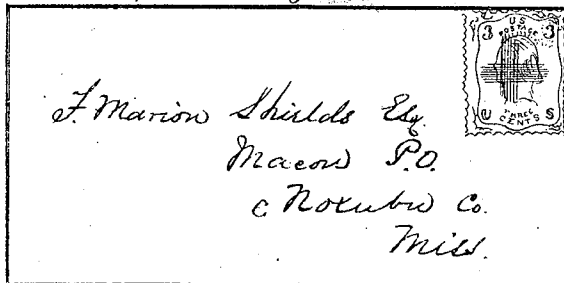 U S
3 POSTAGE 3
U THREE S
CENTS
F. Marion Shields Esq.
Macon P.O.
Noxubee Co.
Miss.